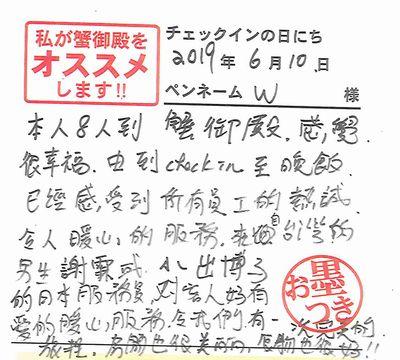 私が蟹御殿を
オススメ
します!!
チェックインの日にち
2019年 6月 10.日
ペンネーム W 様
本人8人到 蟹御殿. 感覺
很幸福. 由到 check in 至晚飯
已經感受到所有員工的熱誠
令人暖心的服務. 來自台灣的
男生謝 小出博子
的日本服務員, 對客人好有
愛的暖心服務. 令我們有一次
旅程. 房間也很美麗, 食物也很好!!
お墨
つき